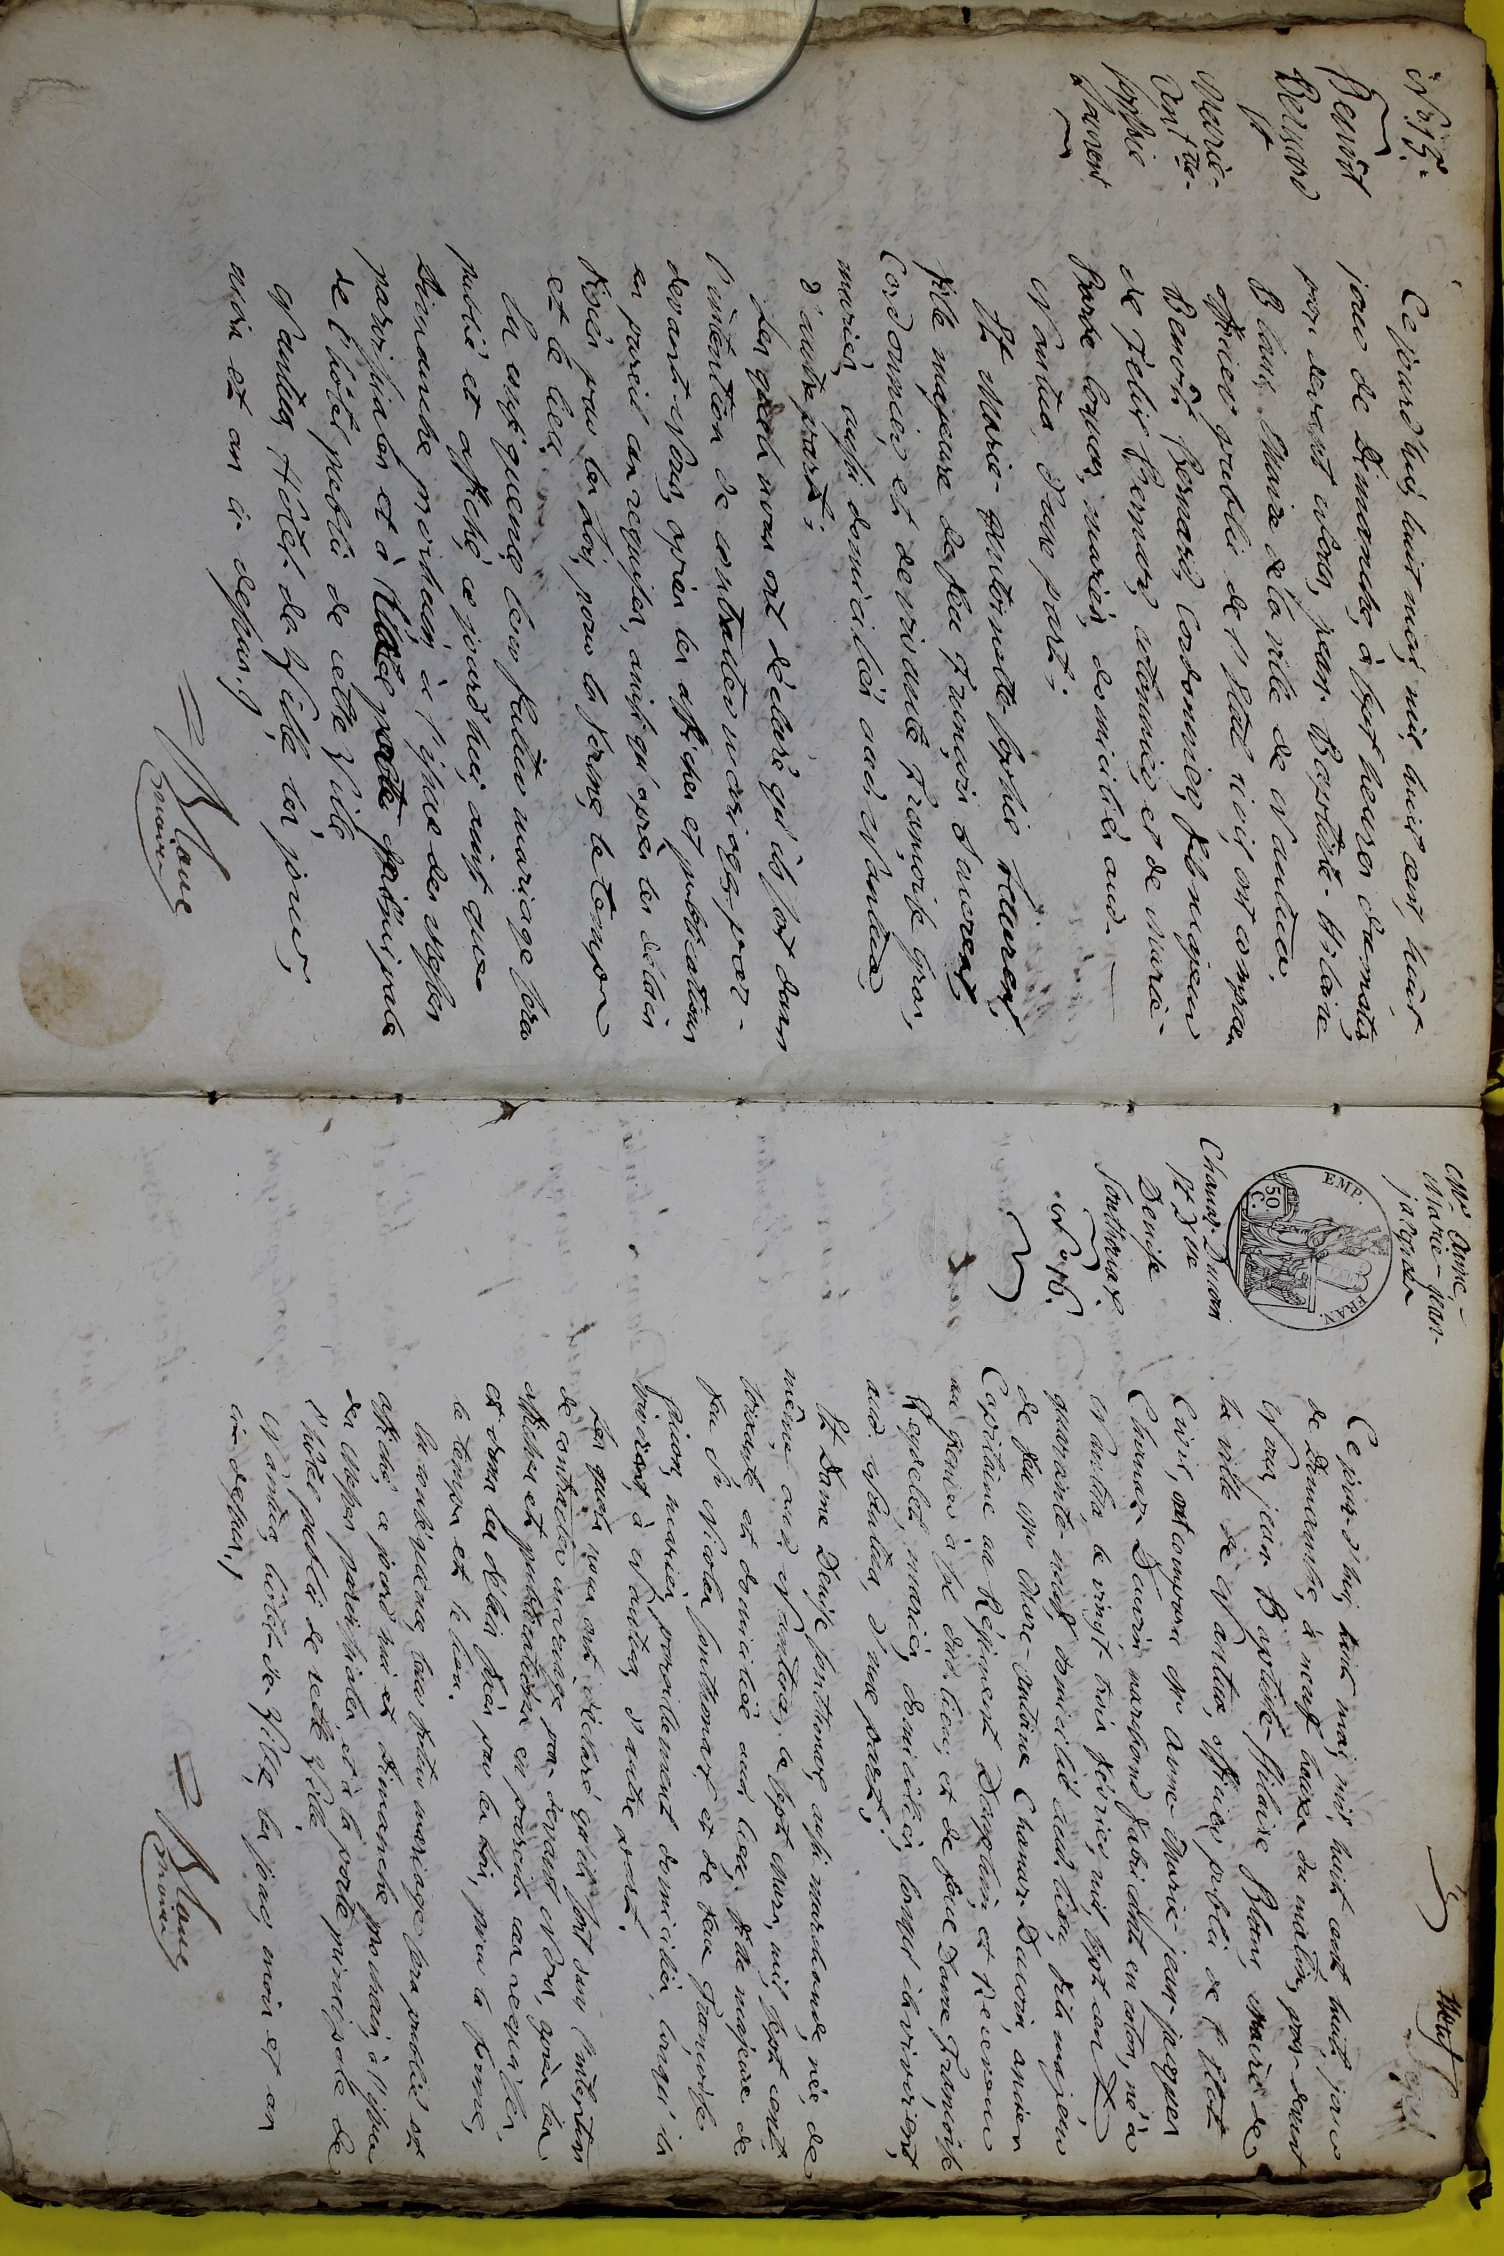 N.° 15.
Benoît
Bernard
Et
Marie-
Ant.te-
Sophie
Laurent
Ce jourd'hui, huit mai, mil huit cent huit,
jour de Dimanche, à sept heures du matin,
par devant Nous, jean-Baptiste-hilaire
Blanc, Maire de la ville de Nantua,
officier public de l'Etat civil ont comparu
Benoît Bernard, Cordonnier, fils majeur
de félix Bernard, aubergiste, et de Marie-
mariés, domiciliés aud.
Nantua, d'une part;
Et Marie-Antoinette-Sophie Laurent,
fille majeure de feu François Laurent,
Cordonnier, et de vivante Françoise Gros,
mariés, aussi domiciliés aud. Nantua,
d'autre part;
Les quels nous ont déclaré qu'ils sont dans
l'intention de contracter mariage, par-
devant Nous, après les affiches et publications
en pareil cas requises, ainsi qu'après les délais
fixés par les Lois, pour la forme, le temps
et le lieu.
En conséquence, leur futur mariage sera
publié et affiché ce jourd'hui, ainsi que
Dimanche prochain, à l'issue des Messes
paroissiales et à la porte principale
de l'hôtel public de cette Ville.
Nantua, hôtel-de-Ville, les jour,
mois et an ci-dessus.
Blanc
maire
neuf
Mr. Anne-
Marie-jean-
jacques
EMP. FRA.
50
C.
Chanar-Ducoin
Et D.me
Denise
Sonthonax.
N.° 16.
Ce jourd'hui, huit mai, mil huit cent huit, jour
de Dimanche, à neuf heures du matin, par-devant
Nous, jean-Baptiste-hilaire Blanc, Maire de
la ville de Nantua, officier public de l'Etat
Civil, ont comparu Mr. Anne-Marie-jean-jacques
Chanar-Ducoin, marchand fabricant en coton, né à
Nantua, le vingt-trois février, mil sept cent
quarante-neuf, domicilié aud. lieu, fils majeur
de feu Mr. Marc-Antoine Chanar-Ducoin, ancien
Capitaine au Régiment Dauphin, et Receveur
au grenier à sel dud. lieu, et de feue Dame Françoise
Reydelet, mariés, domiciliés, lorsqu'ils vivoient,
aud. Nantua, d'une part;
Et Dame Denise Sonthonax, aussi marchande, née, de
même, aud. Nantua, le sept Mars, mil sept cent
soixante et domiciliée aud. lieu, fille majeure de
feu Sr. Nicolas Sonthonax et de feue Françoise
mariés, pareillement domiciliés, lorsqu'ils
vivoient, à Nantua, d'autre part.
Les quels nous ont déclaré qu'ils sont dans l'intention
de contracter mariage, par-devant Nous, après les
affiches et publications en pareils cas requises,
et dans les délais fixés par les Lois, pour la forme,
le temps et le lieu.
En conséquence, leur futur mariage sera publié et
affiché, ce jourd'hui et Dimanche prochain, à l'issue
des Messes paroissiales et à la porte principale de
l'hôtel public de cette Ville.
Nantua, hôtel-de-Ville, les jour, mois et an
ci-dessus,
Blanc
maire